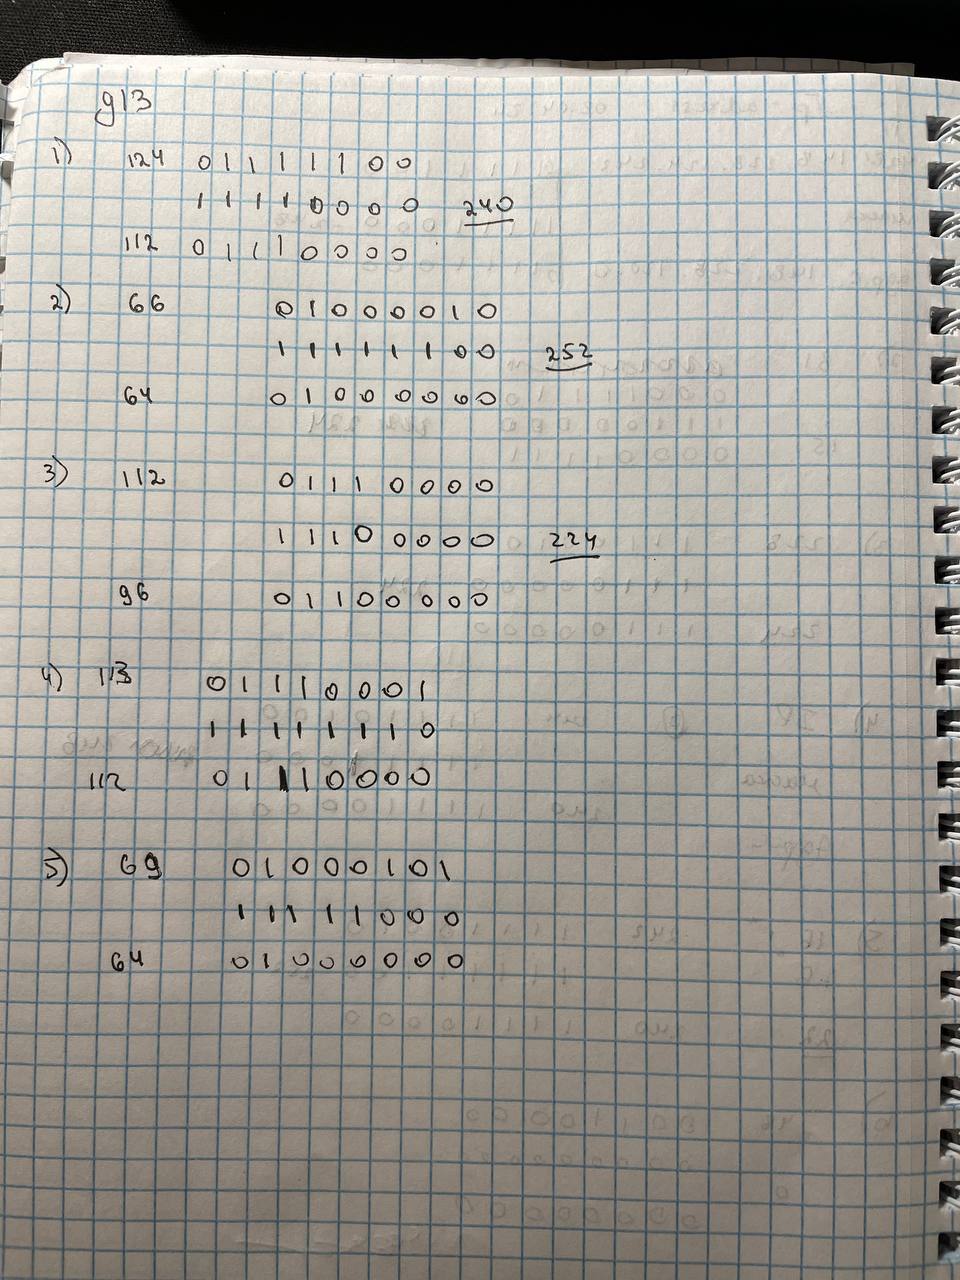 д13
1) 124 0 1 1 1 1 1 0 0
1 1 1 1 0 0 0 0 240
112 0 1 1 1 0 0 0 0
2) 66 0 1 0 0 0 0 1 0
1 1 1 1 1 1 0 0 252
64 0 1 0 0 0 0 0 0
3) 112 0 1 1 1 0 0 0 0
1 1 1 0 0 0 0 0 224
96 0 1 1 0 0 0 0 0
4) 113 0 1 1 1 0 0 0 1
1 1 1 1 1 1 1 0
112 0 1 1 1 0 0 0 0
5) 69 0 1 0 0 0 1 0 1
1 1 1 1 1 0 0 0
64 0 1 0 0 0 0 0 0